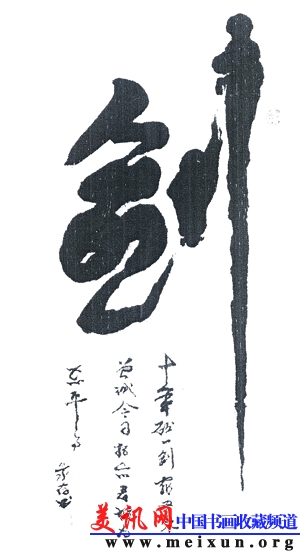 剑
十年磨一剑霜刃未
曾试今日把示君谁为
不平事
美讯网 中国书画收藏频道
www.meixun.org